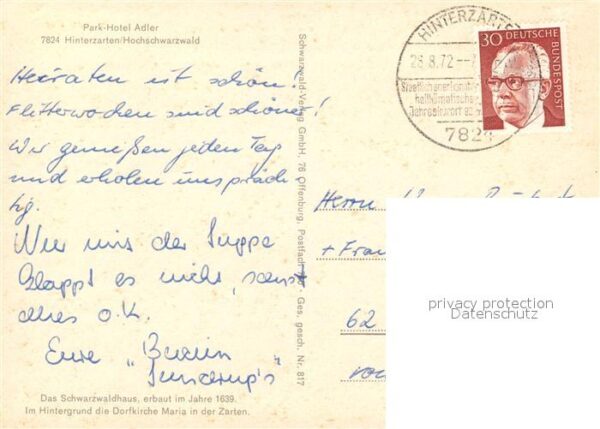 Park-Hotel Adler
7824 Hinterzarten/Hochschwarzwald
Heiraten ist schön!
Flitterwochen sind schöner!
Wir genießen jeden Tag
und erholen uns präch-
tig.
Nur mit der Suppe
klappt es nicht, sonst
alles o.k.
Eure "
Sundrup's"
Das Schwarzwaldhaus, erbaut im Jahre 1639.
Im Hintergrund die Dorfkirche Maria in der Zarten.
Schwarzwald-Verlag GmbH, 76 Offenburg, Postfach · Ges. gesch. Nr. 817
HINTERZARTEN
8.72
Jahreskurort
7824
30
DEUTSCHE
BUNDESPOST
Herrn
+ Frau
62
privacy protection
Datenschutz